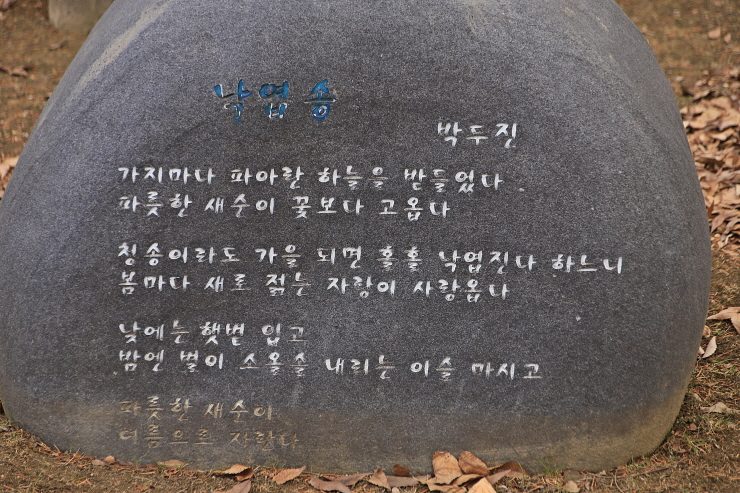 낙엽송
박두진
가지마다 파아란 하늘을 받들었다
파릇한 새순이 꽃보다 고옵다
청송이라도 가을 되면 홀홀 낙엽진다 하느니
봄마다 새로 젊는 자랑이 사랑옵다
낮에는 햇볕 입고
밤엔 별이 소올솔 내리는 이슬 마시고
파릇한 새순이
여름으로 자란다